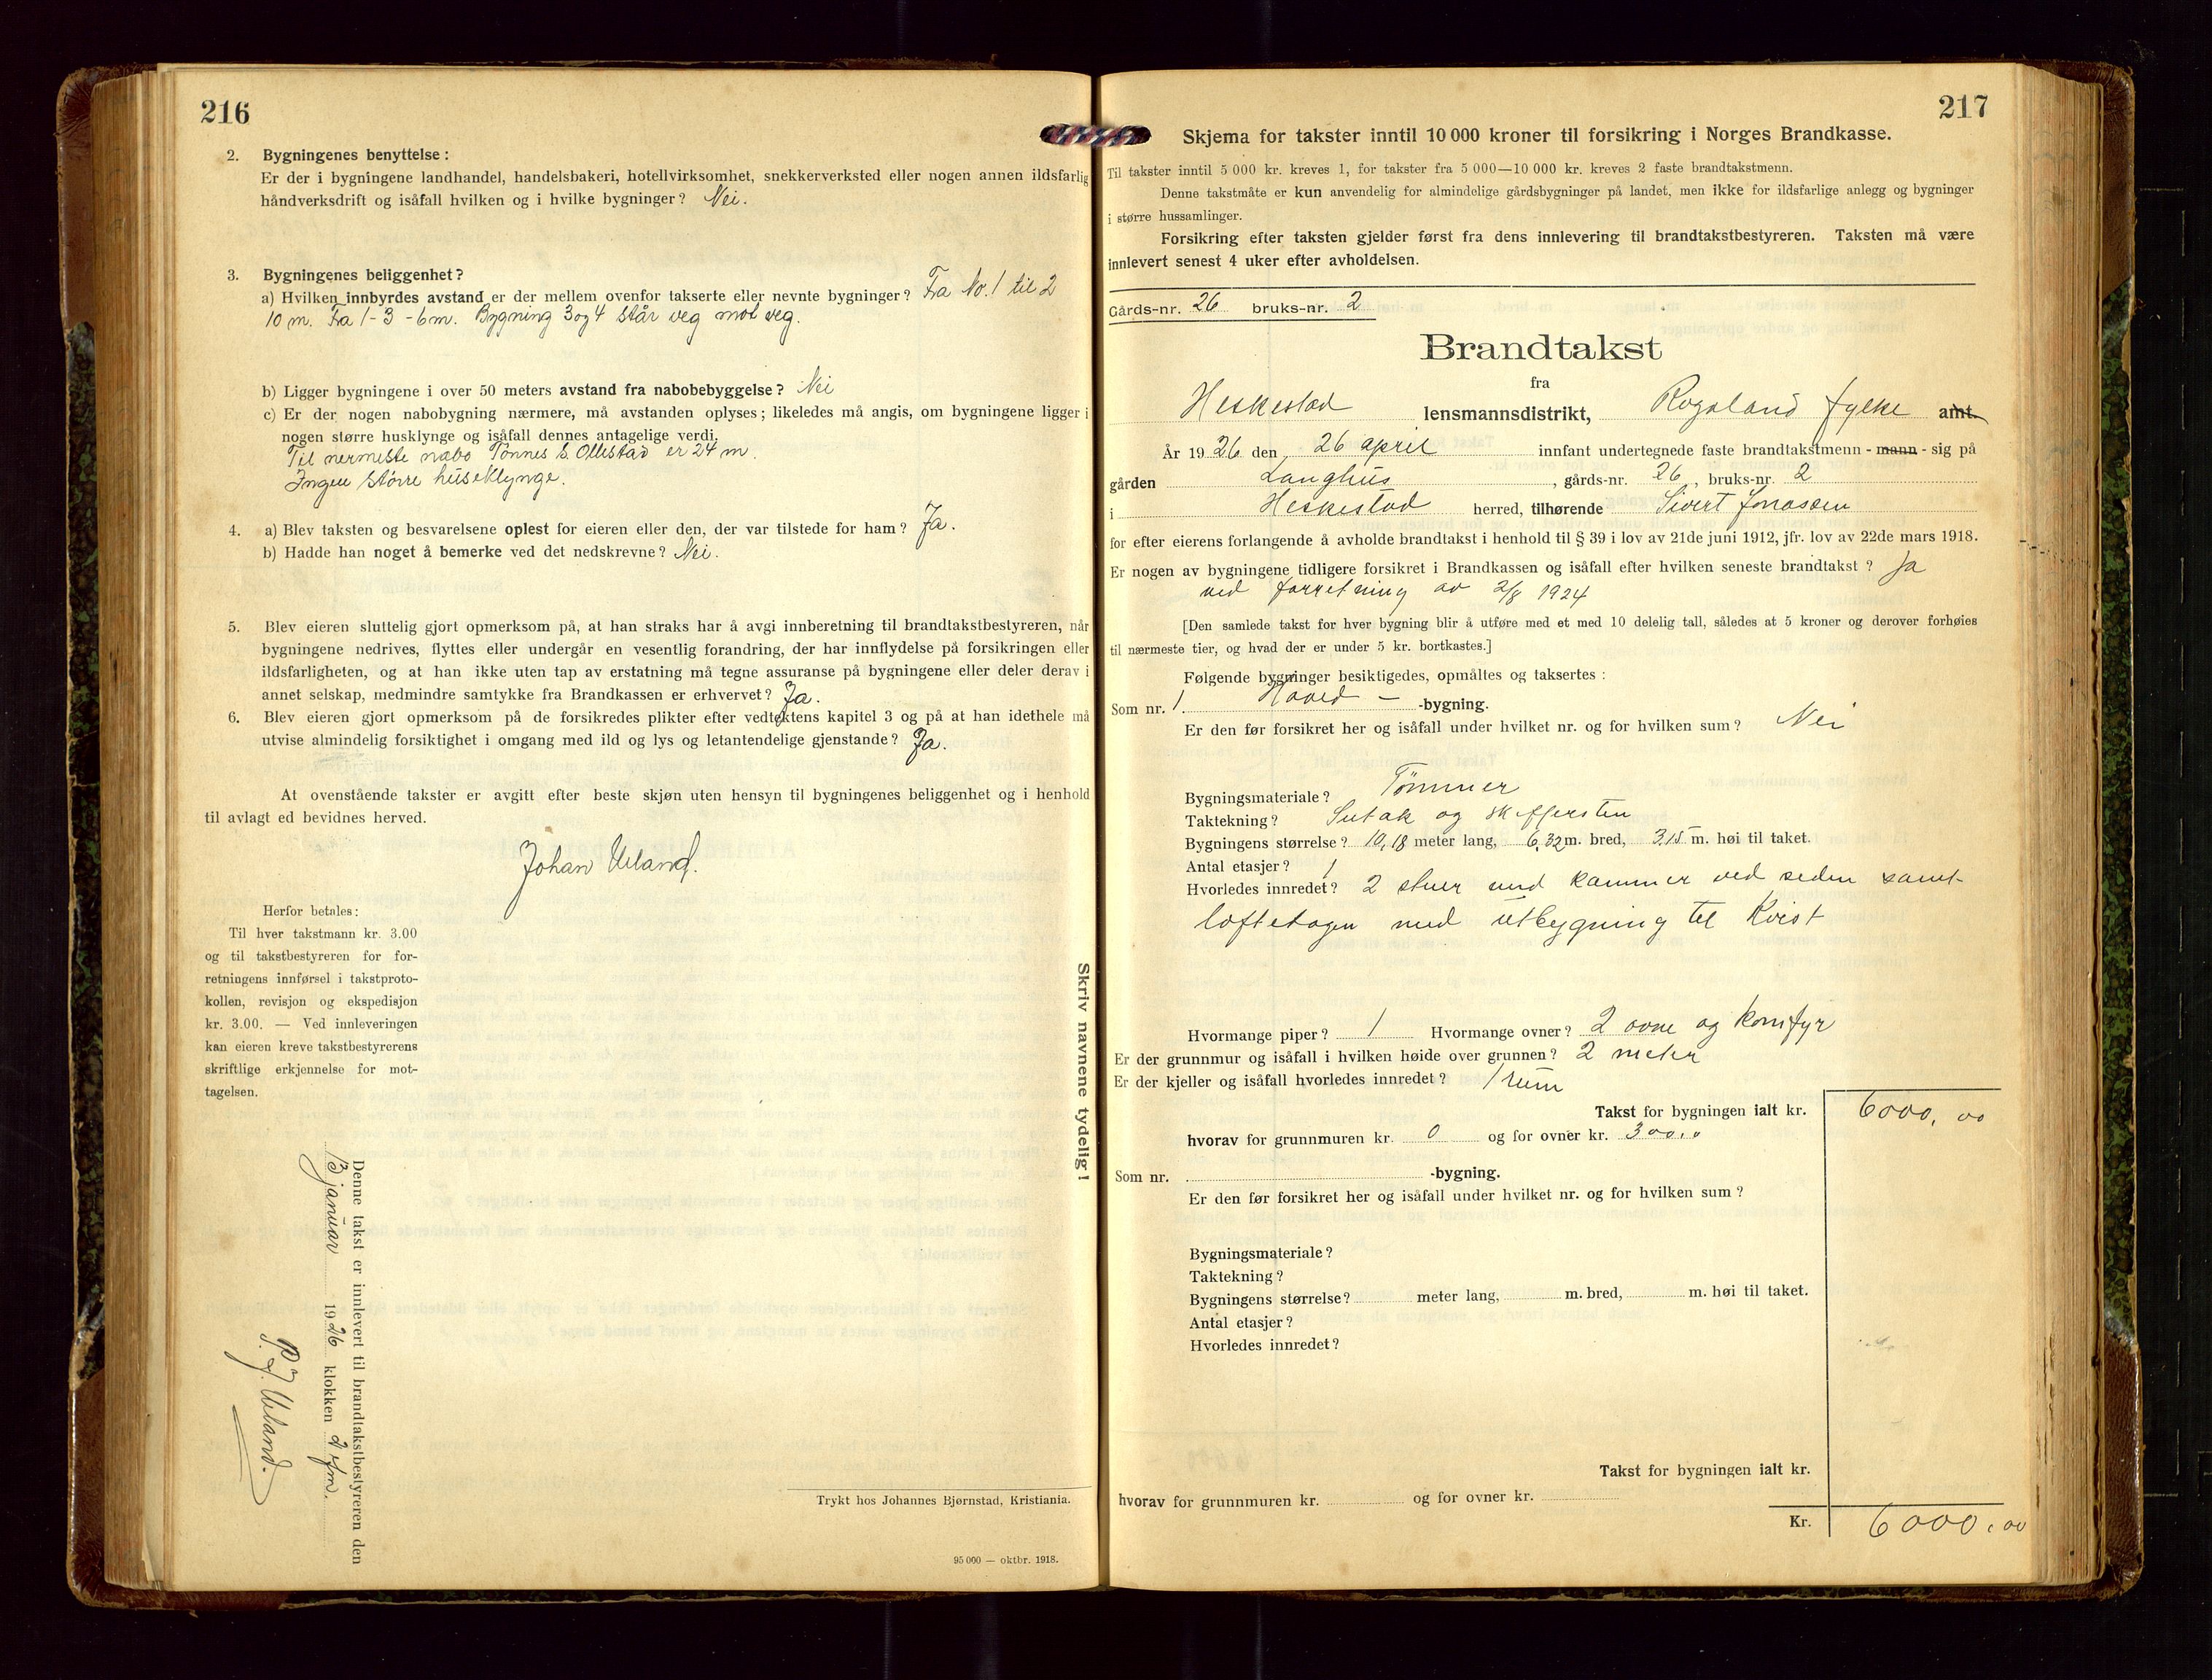 216
2. Bygningenes benyttelse:
Er der i bygningene landhandel, handelsbakeri, hotellvirksomhet, snekkerverksted eller nogen annen ildsfarlig
håndverksdrift og isåfall hvilken og i hvilke bygninger? Nei.
3. Bygningenes beliggenhet?
a) Hvilken innbyrdes avstand er der mellem ovenfor takserte eller nevnte bygninger? Fra No. 1 til 2
10 m. Fra 1-3 - 6 m. Bygning 3 og 4 står veg mot veg.
b) Ligger bygningene i over 50 meters avstand fra nabobebyggelse? Nei
c) Er der nogen nabobygning nærmere, må avstanden oplyses; likeledes må angis, om bygningene ligger i
nogen større husklynge og isåfall dennes antagelige verdi.
Til nermeste nabo Tønnes S. Ollestad er 24 m.
Ingen større huseklynge.
4. a) Blev taksten og besvarelsene oplest for eieren eller den, der var tilstede for ham? Ja.
b) Hadde han noget å bemerke ved det nedskrevne? Nei.
5. Blev eieren sluttelig gjort opmerksom på, at han straks har å avgi innberetning til brandtakstbestyreren, når
bygningene nedrives, flyttes eller undergår en vesentlig forandring, der har innflydelse på forsikringen eller
ildsfarligheten, og at han ikke uten tap av erstatning må tegne assuranse på bygningene eller deler derav i
annet selskap, medmindre samtykke fra Brandkassen er erhvervet? Ja.
6. Blev eieren gjort opmerksom på de forsikredes plikter efter vedtektens kapitel 3 og på at han idethele må
utvise almindelig forsiktighet i omgang med ild og lys og letantendelige gjenstande? Ja.
At ovenstående takster er avgitt efter beste skjøn uten hensyn til bygningenes beliggenhet og i henhold
til avlagt ed bevidnes herved.
Johan Ueland.
Herfor betales:
Til hver takstmann kr. 3.00
og til takstbestyreren for for-
retningens innførsel i takstproto-
kollen, revisjon og ekspedisjon
kr. 3.00. — Ved innleveringen
kan eieren kreve takstbestyrerens
skriftlige erkjennelse for mot-
tagelsen.
Skriv navnene tydelig!
Denne takst er innlevert til brandtakstbestyreren den
13 januar 1926 klokken 2 fm.
P. J. Ueland.
Trykt hos Johannes Bjørnstad, Kristiania.
95 000 — oktbr. 1918.
217
Skjema for takster inntil 10 000 kroner til forsikring i Norges Brandkasse.
Til takster inntil 5 000 kr. kreves 1, for takster fra 5 000—10 000 kr. kreves 2 faste brandtakstmenn.
Denne takstmåte er kun anvendelig for almindelige gårdsbygninger på landet, men ikke for ildsfarlige anlegg og bygninger
i større hussamlinger.
Forsikring efter taksten gjelder først fra dens innlevering til brandtakstbestyreren. Taksten må være
innlevert senest 4 uker efter avholdelsen.
Gårds-nr. 26 bruks-nr. 2
Brandtakst
fra
Heskestad lensmannsdistrikt, Rogaland fylke amt.
År 1926 den 26 april innfant undertegnede faste brandtakstmenn - mann - sig på
gården Langhus, gårds-nr. 26, bruks-nr. 2
i Heskestad herred, tilhørende Sivert Jonassen
for efter eierens forlangende å avholde brandtakst i henhold til § 39 i lov av 21de juni 1912, jfr. lov av 22de mars 1918.
Er nogen av bygningene tidligere forsikret i Brandkassen og isåfall efter hvilken seneste brandtakst? Ja
ved forretning av 2/8 1924
[Den samlede takst for hver bygning blir å utføre med et med 10 delelig tall, således at 5 kroner og derover forhøies
til nærmeste tier, og hvad der er under 5 kr. bortkastes.]
Følgende bygninger besiktigedes, opmåltes og taksertes:
Som nr. 1 Hoved - -bygning.
Er den før forsikret her og isåfall under hvilket nr. og for hvilken sum? Nei
Bygningsmateriale? Tømmer
Taktekning? Sutak og skiffersten
Bygningens størrelse? 10,18 meter lang, 6,32 m. bred, 3,15 m. høi til taket.
Antal etasjer? 1
Hvorledes innredet? 2 stuer med kammer ved seden samt
loftetagen med utbygning til Kvist
Hvormange piper? 1 Hvormange ovner? 2 ovne og komfyr
Er der grunnmur og isåfall i hvilken høide over grunnen? 2 meter
Er der kjeller og isåfall hvorledes innredet? 1 rum
Takst for bygningen ialt kr. 6000,00
hvorav for grunnmuren kr. 0 og for ovner kr. 300.00
Som nr. -bygning.
Er den før forsikret her og isåfall under hvilket nr. og for hvilken sum?
Bygningsmateriale?
Taktekning?
Bygningens størrelse? meter lang, m. bred, m. høi til taket.
Antal etasjer?
Hvorledes innredet?
Takst for bygningen ialt kr.
hvorav for grunnmuren kr. og for ovner kr.
Kr. 6000,00